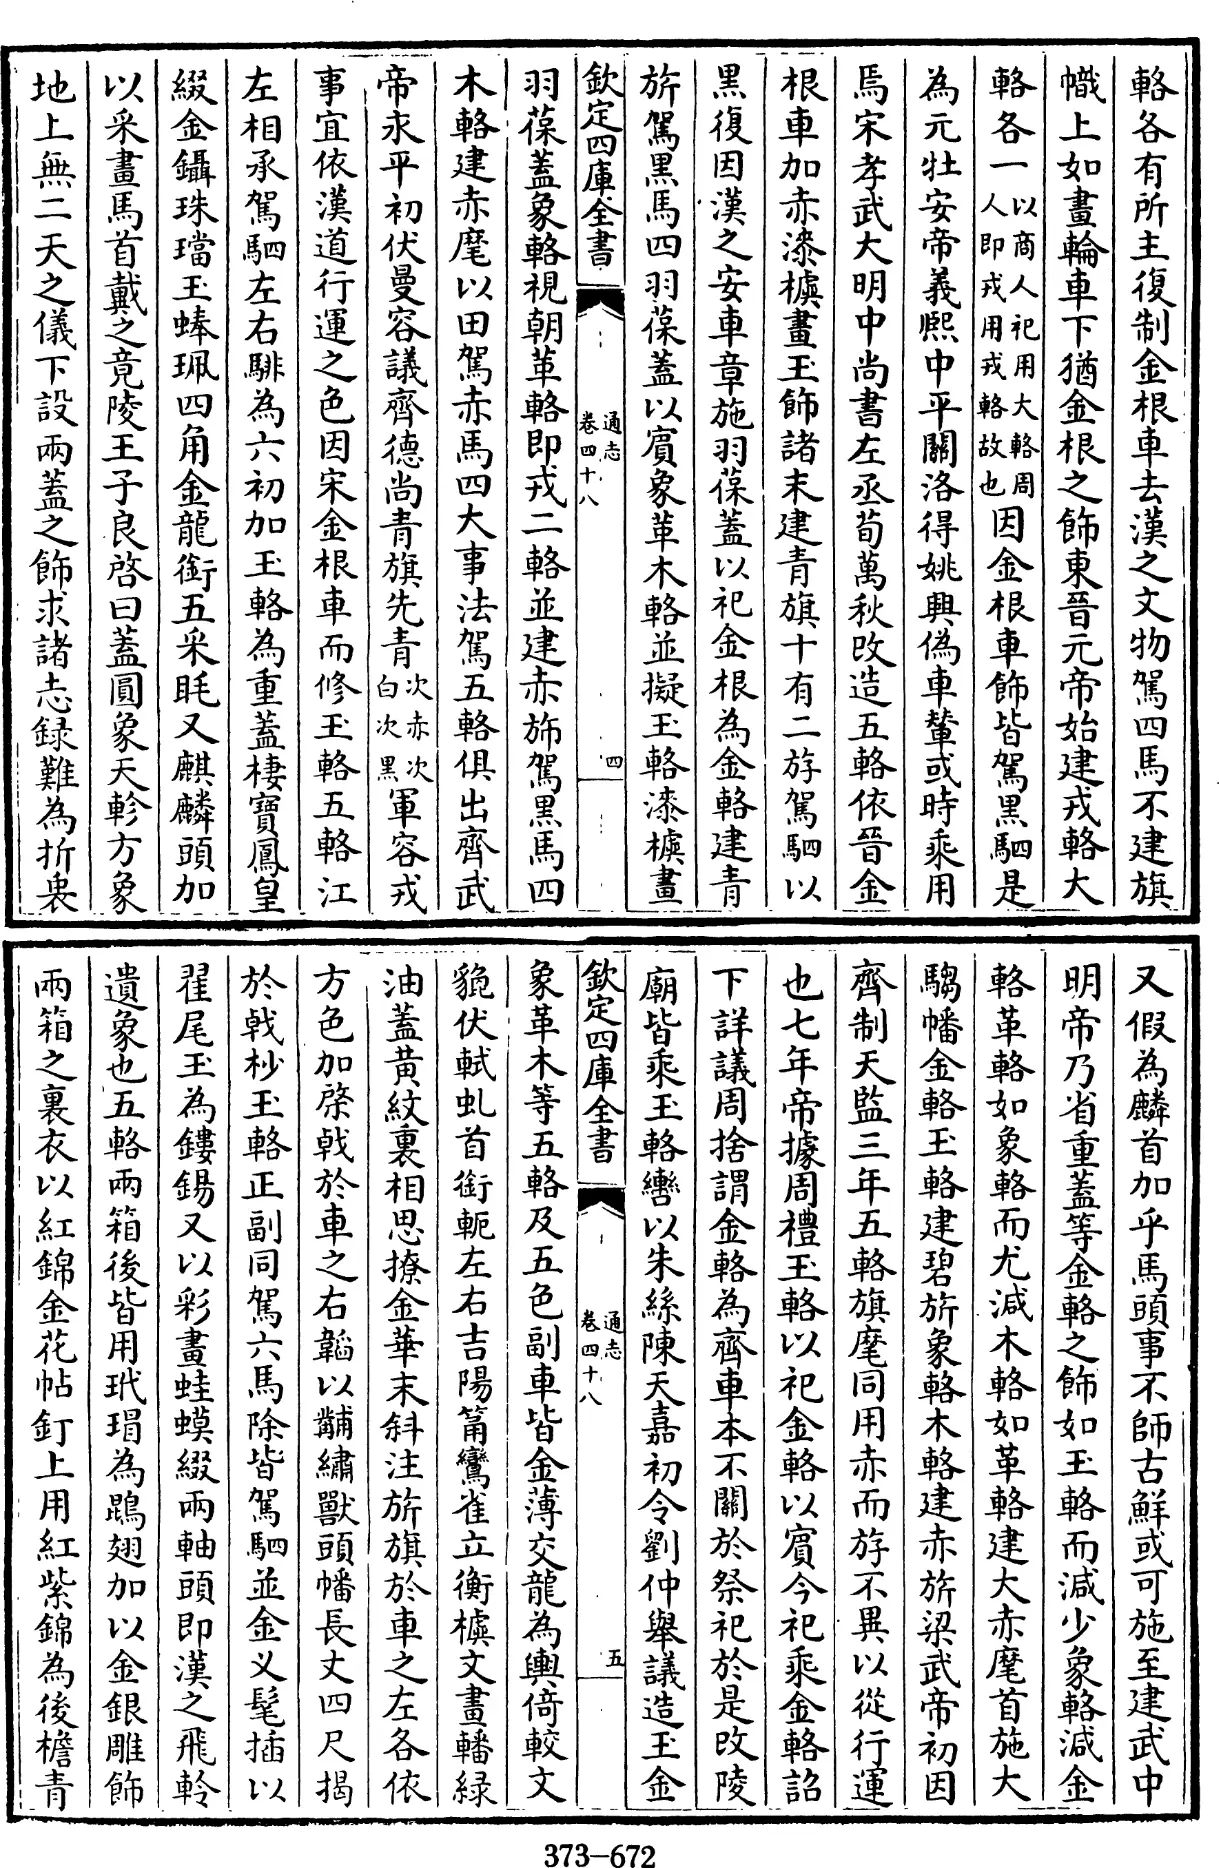 輅各有所主復制金根車去漢之文物駕四馬不建旗
幟上如畫輪車下猶金根之飾東晉元帝始建戎輅大
輅各一以商人祀用大輅周人即戎用戎輅故也因金根車飾皆駕黑駟是
為元牡安帝義熙中平關洛得姚興偽車輦或時乘用
焉宋孝武大明中尚書左丞荀萬秋改造五輅依晉金
根車加赤漆樻畫玉飾諸末建青旗十有二斿駕駟以
黑復因漢之安車章施羽葆蓋以祀金根為金輅建青
旂駕黑馬四羽葆蓋以賓象革木輅並擬玉輅漆樻畫
欽定四庫全書
通志
卷四十八
四
羽葆蓋象輅視朝革輅即戎二輅並建赤旂駕黑馬四
木輅建赤麾以田駕赤馬四大事法駕五輅俱出齊武
帝永平初伏曼容議齊德尚青旗先青次赤次白次黑軍容戎
事宜依漢道行運之色因宋金根車而修玉輅五輅江
左相承駕駟左右騑為六初加玉輅為重蓋棲寶鳳皇
綴金鑷珠璫玉蚌珮四角金龍銜五采毦又麒麟頭加
以采畫馬首戴之竟陵王子良啓曰蓋圓象天軫方象
地上無二天之儀下設兩蓋之飾求諸志録難為折衷
又假為麟首加乎馬頭事不師古鮮或可施至建武中
明帝乃省重蓋等金輅之飾如玉輅而減少象輅減金
輅革輅如象輅而尤減木輅如革輅建大赤麾首施大
騶幡金輅玉輅建碧旂象輅木輅建赤旂梁武帝初因
齊制天監三年五輅旗麾同用赤而斿不異以從行運
也七年帝據周禮玉輅以祀金輅以賓今祀乘金輅詔
下詳議周捨謂金輅為齊車本不關於祭祀於是改陵
廟皆乘玉輅轡以朱絲陳天嘉初令劉仲舉議造玉金
欽定四庫全書
通志
卷四十八
五
象革木等五輅及五色副車皆金薄交龍為輿倚較文
貌伏軾虬首銜軛左右吉陽筩鸞雀立衡樻文畫轓緑
油蓋黄紋裏相思橑金華末斜注旂旗於車之左各依
方色加棨戟於車之右韜以黼繡獸頭幡長丈四尺揭
於戟杪玉輅正副同駕六馬除皆駕駟並金义髦插以
翟尾玉為鏤錫又以彩畫蛙蟆綴兩軸頭即漢之飛軨
遺象也五輅兩箱後皆用玳瑁為鵾翅加以金銀雕飾
兩箱之裏衣以紅錦金花帖釘上用紅紫錦為後檐青
373-672